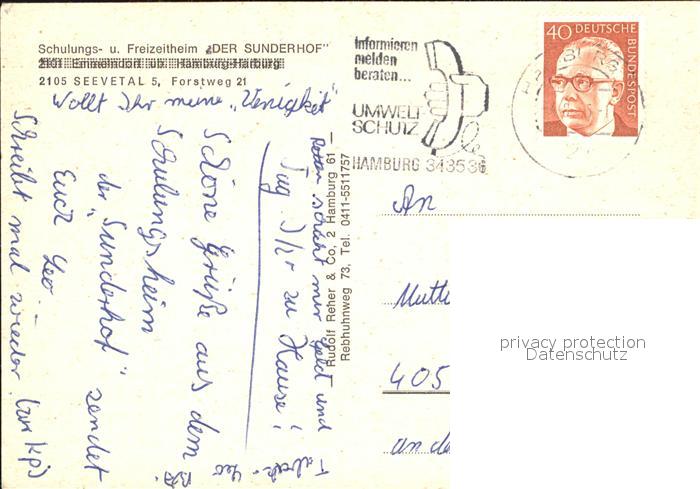 Schulungs- u. Freizeitheim „DER SUNDERHOF"
2101 Emmelndorf üb. Hamburg-Harburg
2105 SEEVETAL 5, Forstweg 21
Informieren
melden
beraten...
UMWELT
SCHUTZ
HAMBURG 343536
40 DEUTSCHE
BUNDESPOST
Wollt Ihr meine „Wenigkeit"
schickt mir Geld und
Tag Ihr zu Hause!
Schöne Grüße aus dem
Schulungsheim
der „Sunderhof" sendet
Euch Leo
Schreibt mal wieder
Rudolf Reher & Co, 2 Hamburg 61 —
Rebhuhnweg 73, Tel. 0411-5511757
An
405
an
privacy protection
Datenschutz